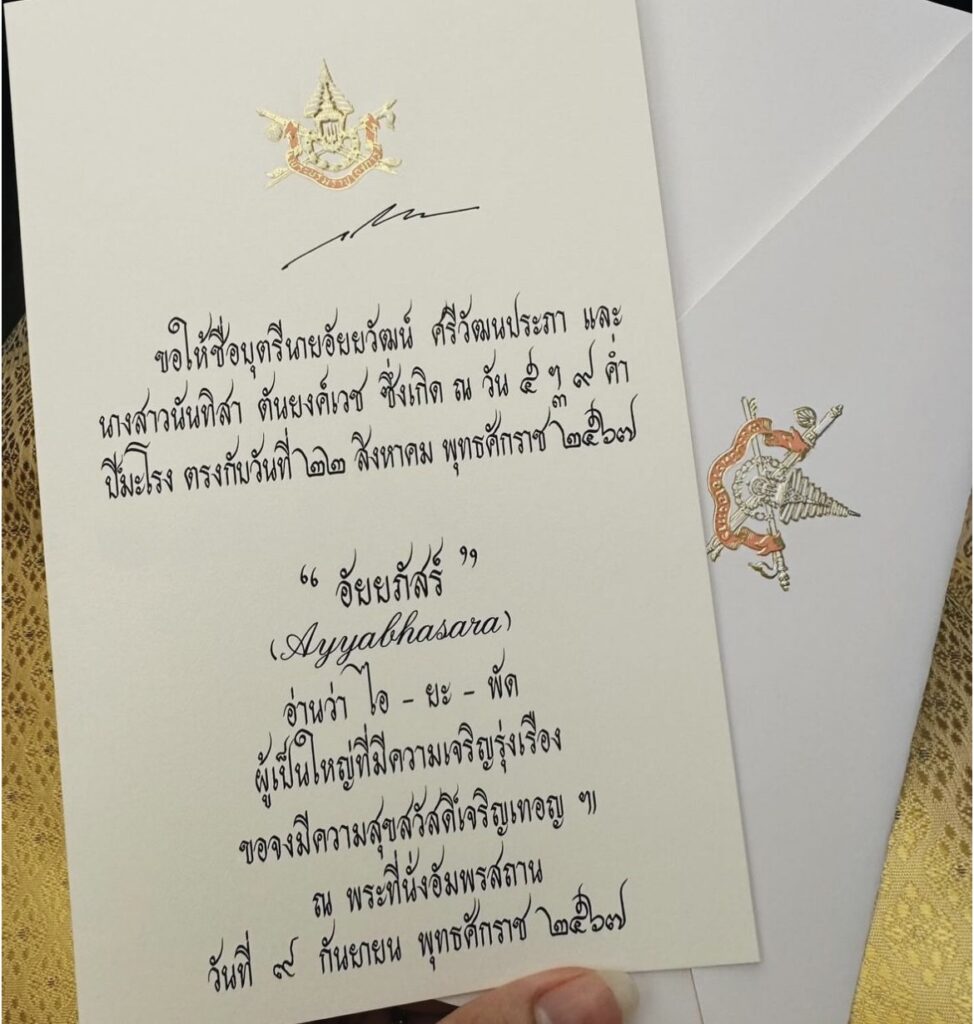 ขอให้ชื่อบุตรีนายอัยยวัฒน์ ศรีวัฒนประภา และ
นางสาวนันทิสา ตันยงค์เวช ซึ่งเกิด ณ วัน ๕ ฯ ๙ ค่ำ
๓
ปีมะโรง ตรงกับวันที่ ๒๒ สิงหาคม พุทธศักราช ๒๕๖๗
“ อัยยภัสร์ ”
(Ayyabhasara)
อ่านว่า ไอ - ยะ - พัด
ผู้เป็นใหญ่ที่มีความเจริญรุ่งเรือง
ขอจงมีความสุขสวัสดิ์เจริญเทอญ ฯ
ณ พระที่นั่งอัมพรสถาน
วันที่ ๙ กันยายน พุทธศักราช ๒๕๖๗